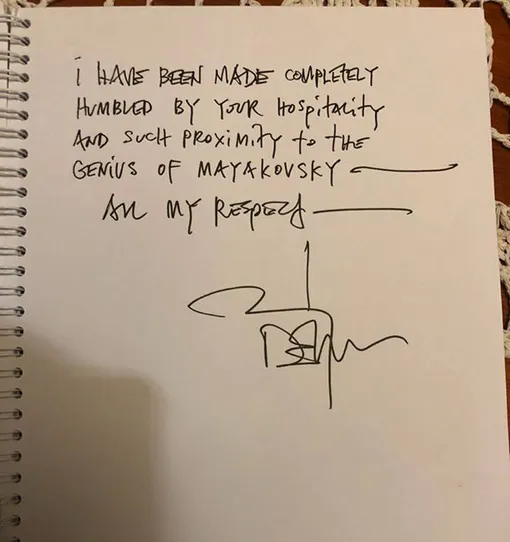 i HAVE BEEN MADE COMPLETELY
HUMBLED BY YOUR HOSPITALITY
AND SUCH PROXIMITY to tHE
GENIUS OF MAYAKOVSKY —
All MY RESPECt —